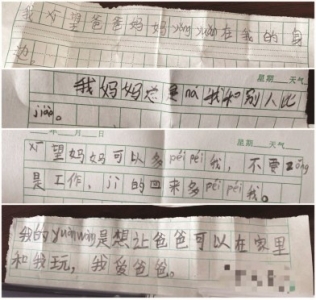 我希望爸爸妈妈yǒng yuǎn在我的身
边。
星期 天气
我妈妈总是ná我和别人比
jiào。
年 月 日
星期 天气
希望妈妈可以多péi péi我，不要zǒng
是工作，jì的回来多péi péi我。
我的yuàn wàng是想让爸爸可以在家里
和我玩，我爱爸爸。